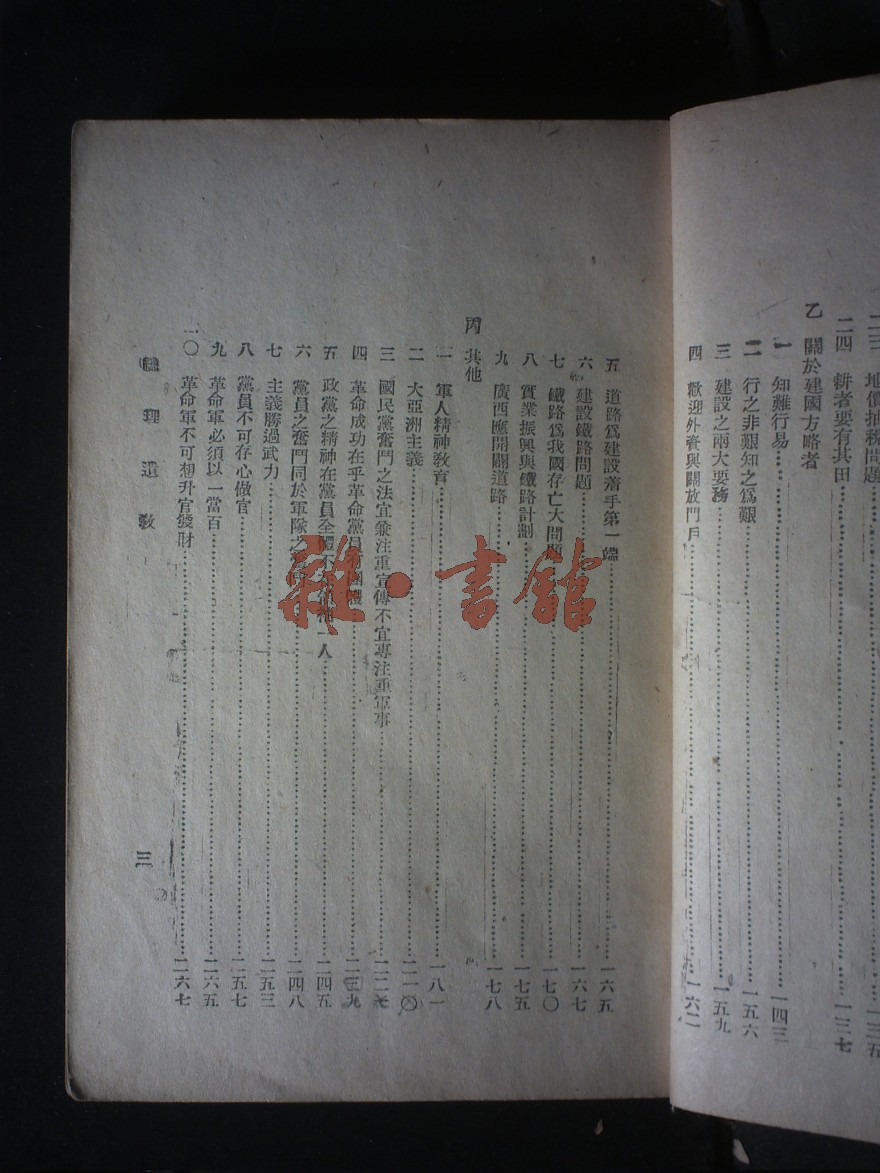 地價抽稅問題……一三五
二四 耕者要有其田……一三七
乙 關於建國方略者
一 知難行易……一四三
二 行之非艱知之爲艱……一五六
三 建設之兩大要務……一五九
四 歡迎外資與開放門戶……一六二
五 道路爲建設着手第一端……一六五
六 建設鐵路問題……一六七
七 鐵路爲我國存亡大問題……一七〇
八 實業振興與鐵路計劃……一七五
九 廣西應開闢道路……一七八
丙 其他
一 軍人精神教育……一八一
二 大亞洲主義……二一〇
三 國民黨奮鬥之法宜兼注重宣傳不宜專注重軍事
四 革命成功在乎革命黨員有團體……二三九
五 政黨之精神在黨員全體不 一人……二四五
六 黨員之奮鬥同於軍隊之……二四八
七 主義勝過武力……二五三
八 黨員不可存心做官……二五七
九 革命軍必須以一當百……二六五
一〇 革命軍不可想升官發財……二六七
總理遺教
三
雜·書館